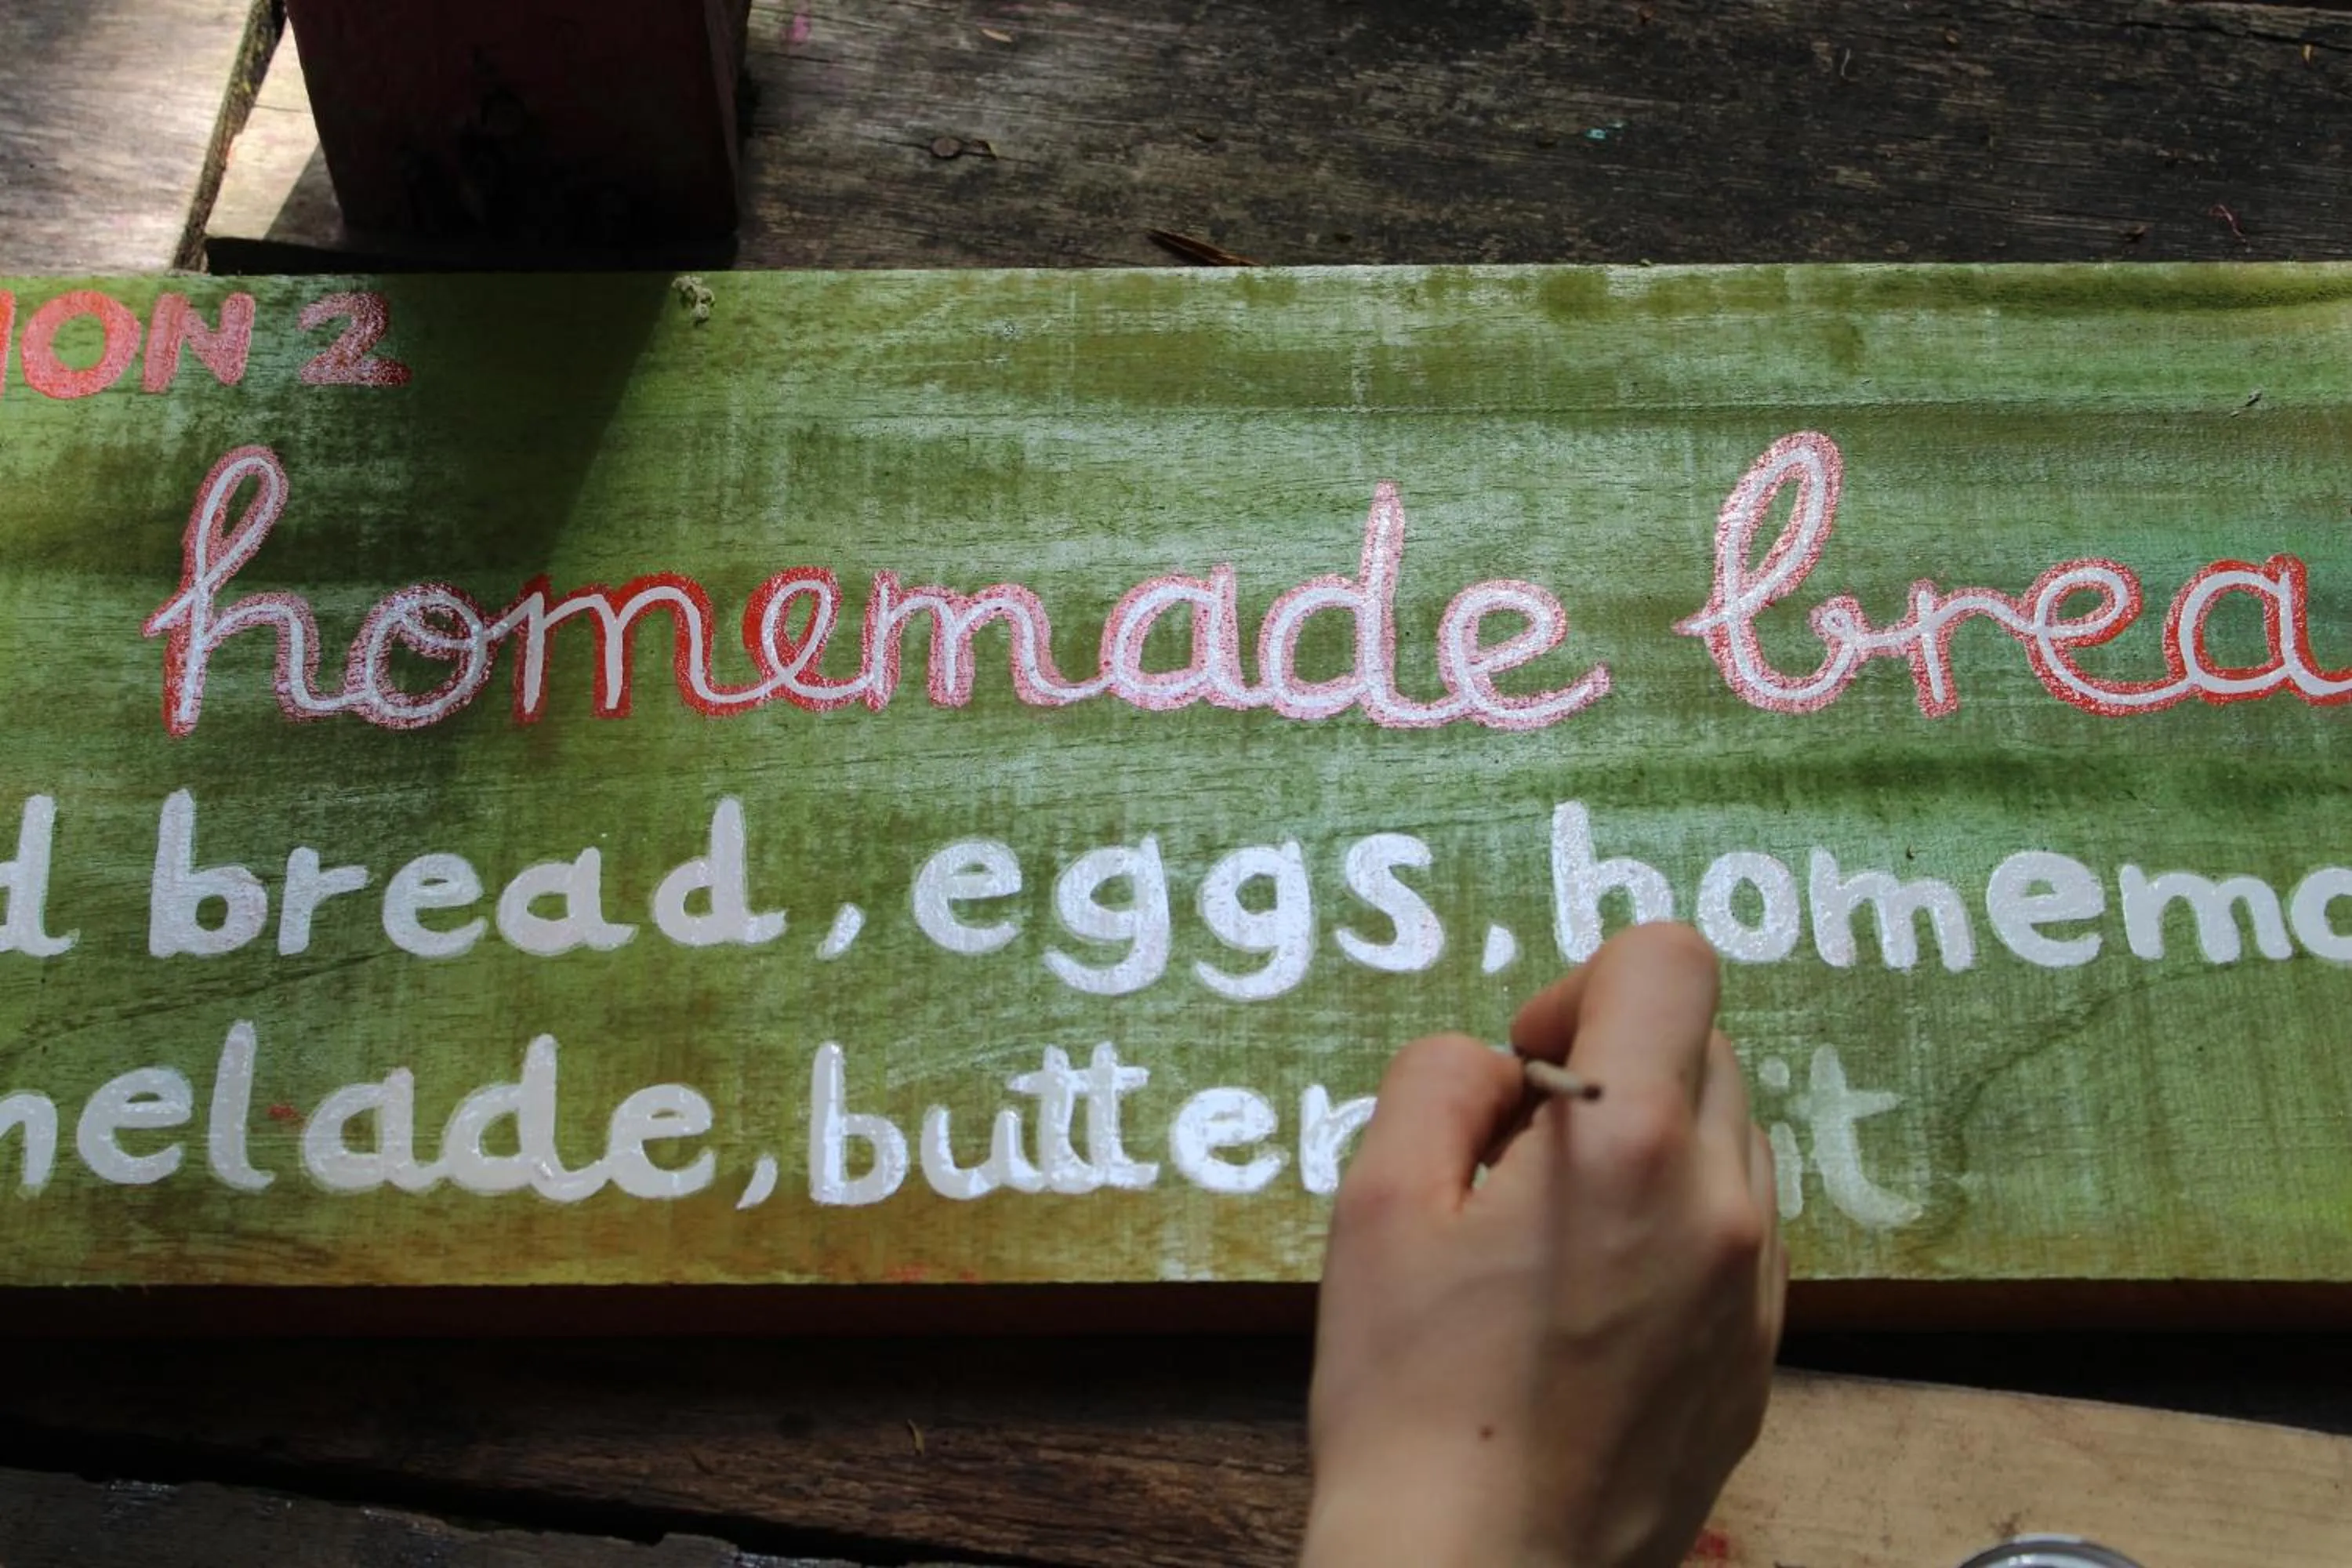 ION 2
homemade brea
d bread, eggs, homema
melade, butter it